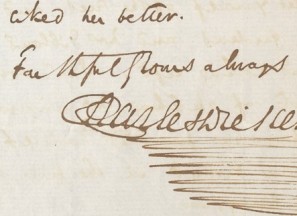 liked her better.
Faithfully Yours always
Charles Dicken